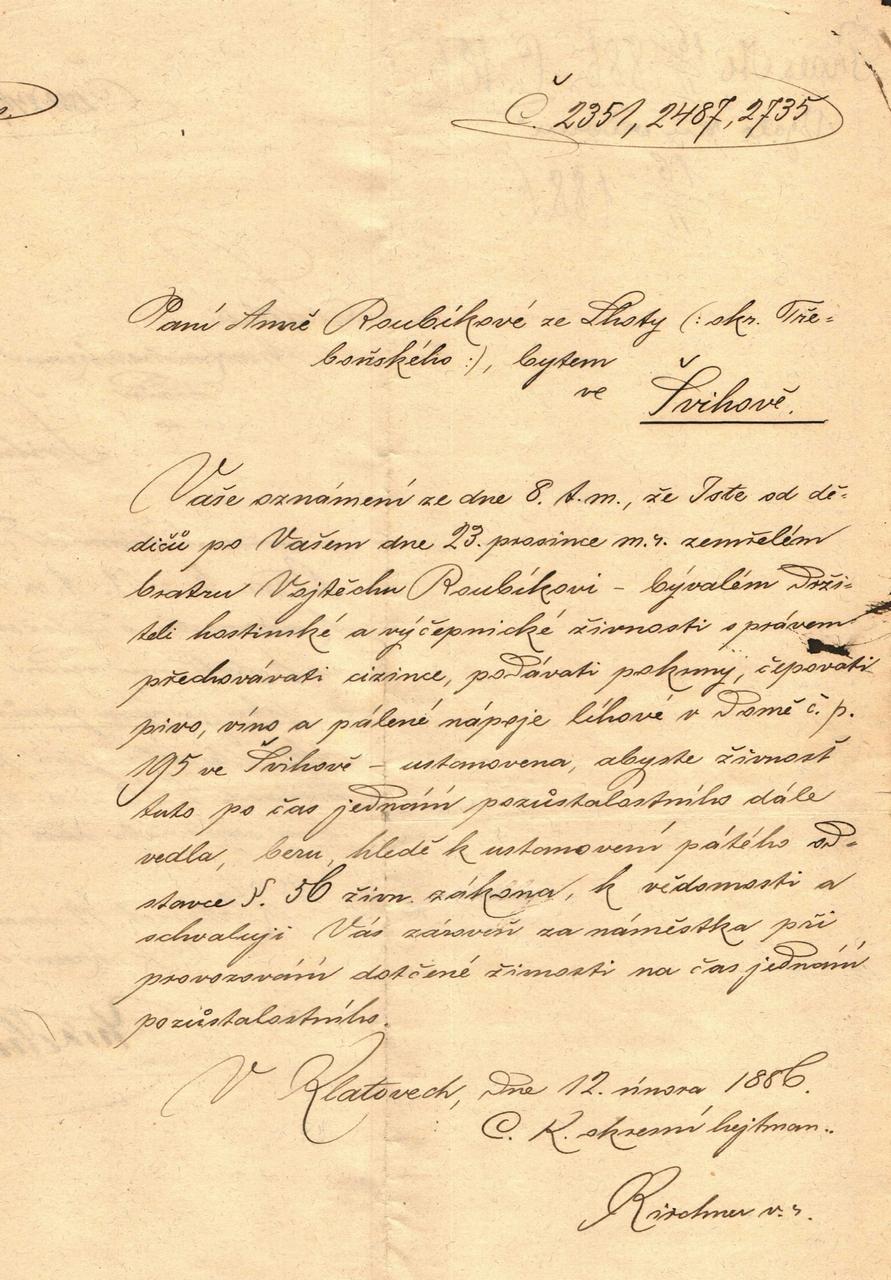 Č. 2351, 2487, 2735
Paní Anně Roubíkové ze Lhoty (: okr. Tře-
boňského :), bytem
ve Švihově.
Vaše oznámení ze dne 8. t. m., že Jste od dě-
dičů po Vašem dne 23. prosince m. r. zemřelém
bratru Vojtěchu Roubíkovi – bývalém drži-
teli hostinské a výčepnické živnosti s právem
přechovávati cizince, podávati pokrmy, čepovati
pivo, víno a pálené nápoje líhové v domě č. p.
195 ve Švihově – ustanovena, abyste živnost
tuto po čas jednání pozůstalostního dále
vedla, beru, hledě k ustanovení pátého od-
stavce §. 56 živn. zákona, k vědomosti a
schvaluji Vás zároveň za náměstka při
provozování dotčené živnosti na čas jednání
pozůstalostního.
V Klatovech, dne 12. února 1886.
C. K. okresní hejtman:
Kirchner v. r.